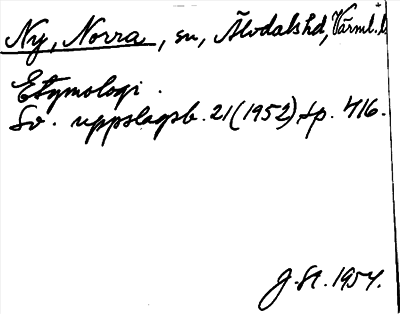 Ny, Norra, sn, Älvdals hd, Värml. l.
Etymologi.
Sv. uppslagsb. 21 (1952), sp. 416.
J. St. 1954.